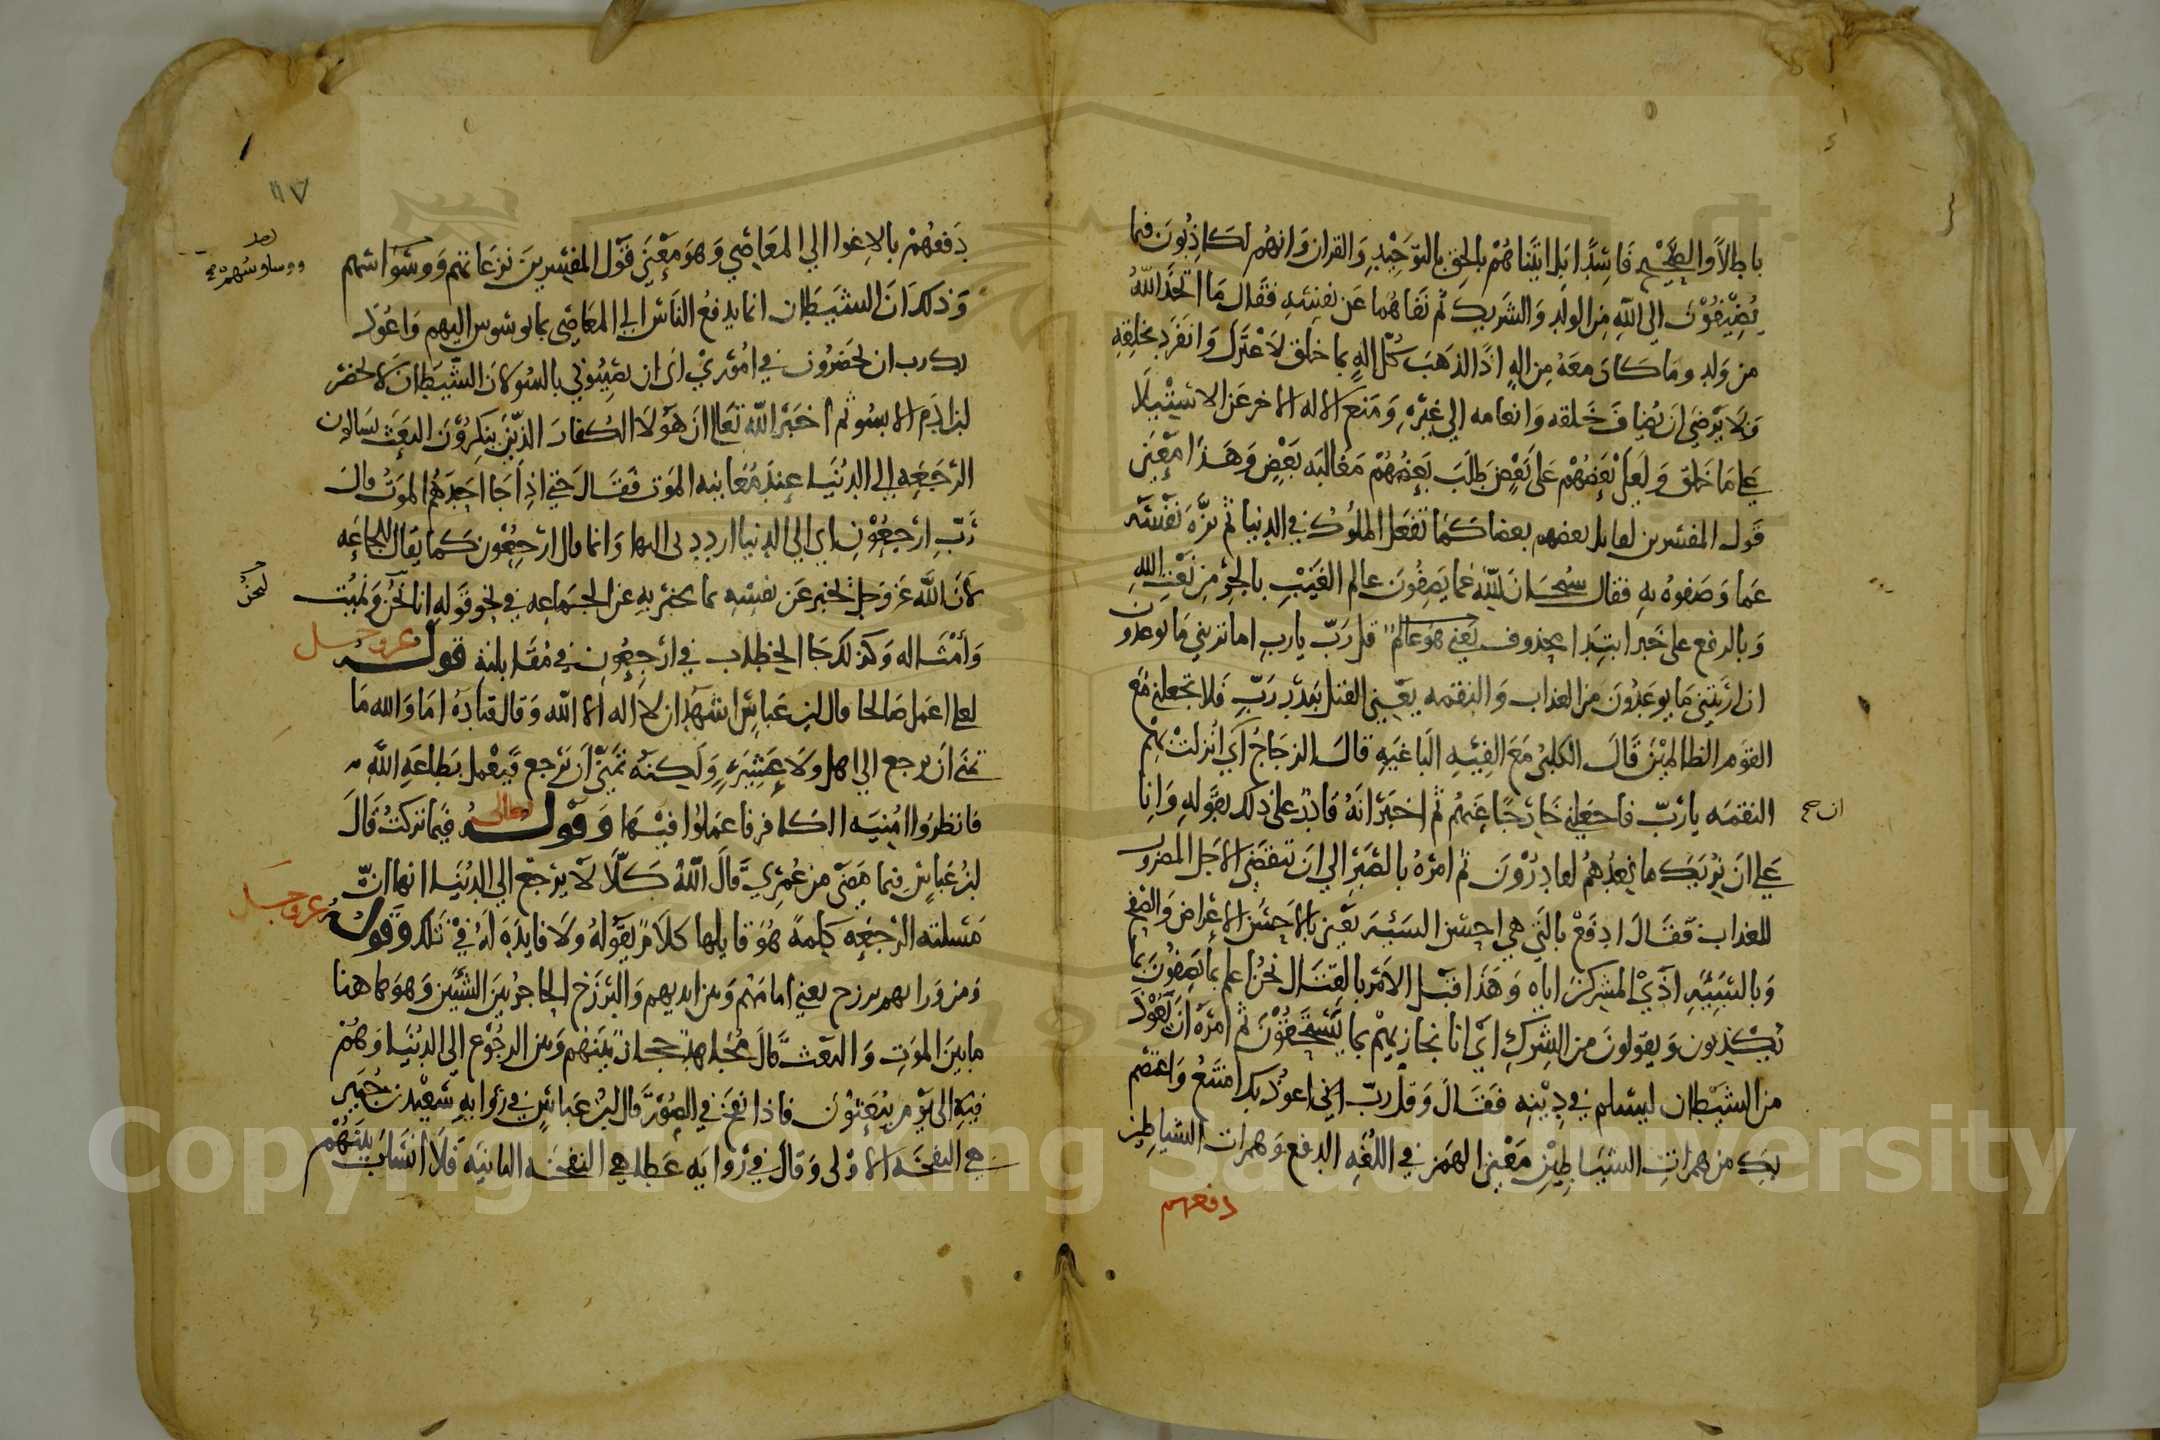 باطلا والصحيح فاسدا بل اتيناهم بالحق بالتوحيد والقران وانهم لكاذبون فيما
يضيفون الى الله من الولد والشريك ثم نفاهما عن نفسه فقال ما اتخذ الله
من ولد وما كان معه من اله اذا لذهب كل اله بما خلق لاعتزل وانفرد بخلقه
ولا يرضى ان يضاف خلقه وانعامه الى غيره ومنع الاله الاخر عن الاستيلا
على ما خلق ولعلا بعضهم على بعض طلب بعضهم مغالبه بعض وهذا معنى
قول المفسرين لقاتل بعضهم بعضا كما تفعل الملوك في الدنيا ثم نزه نفسه
عما وصفوه به فقال سبحان الله عما يصفون عالم الغيب بالجر من نعت الله
وبالرفع على خبر ابتدا محذوف يعني هو عالم قل رب يارب اما تريني ما يوعدون
ان اريتني ما يوعدون من العذاب والنقمه يعني القتل ببدر رب فلا تجعلني مع
القوم الظالمين قال الكلبي مع الفئيه الباغيه قال الزجاج اي ان نزلت بهم
النقمه يا رب فاجعلني خارجا عنهم ثم اخبر انه قادر على ذلك بقوله وانا
ان صح
على ان نريك ما نعدهم لقادرون ثم امره بالصبر الى ان تنقضي الاجل المضروب
للعذاب فقال ادفع بالتي هي احسن السيئه يعني بالاحسن الاعراض والصفح
وبالسيئه اذي المشركين اياه وهذا قبل الامر بالقتال نحن اعلم بما يصفون بما
يكذبون ويقولون من الشرك اي انا نجازيهم بما يستحقون ثم امره ان يتعوذ
من الشيطان ليسلم في دينه فقال وقل رب اني اعوذ بك امتنع واعتصم
بك من همزات الشياطين معنى الهمز في اللغه الدفع وهمزات الشياطين
دفعهم
١١٧
دفعهم بالاغوا الى المعاصي وهو معنى قول المفسرين نزغاتهم ووسواسهم
ووساوسهم
وذلك ان الشيطان انما يدفع الناس الى المعاصي بما يوسوس اليهم واعوذ
بك رب ان يحضرون في اموري اي ان يصيبوني بالسو لان الشيطان لا يحضر
ابن ادم الا بسو ثم اخبر الله تعالى ان هولا الكفار الذين ينكرون البعث يسالون
الرجعه الى الدنيا عند معاينه الموت فقال حتى اذا جا احدهم الموت قال
رب ارجعون اي الى الدنيا ارددني اليها وانما قال ارجعون كما يقال للجماعه
لان الله عز وجل يخبر عن نفسه بما يخبر به عن الجماعه في نحو قوله انا نحن ونميت
وامثاله وكذلك جا الخطاب في ارجعون في مقابلته قوله عز وجل
لعلي اعمل صالحا قال ابن عباس اشهد ان لا اله الا الله وقال قتادة اما والله ما
تمنى ان يرجع الى اهل ولا عشيرة ولكنه تمنى ان يرجع فيعمل بطاعه الله
فانظروا امنيه الكافر فاعملوا فيها وقوله تعالى فيما تركت قال
ابن عباس فيما مضى من عمري قال الله كلا لا يرجع الى الدنيا انها ان
مسلته الرجعه كلمة هو قايلها كلام يقوله ولا فايدة له في ذلك وقوله عز وجل
ومن ورايهم برزخ يعني امامهم وبين ايديهم والبرزخ الحاجز بين الشيئين وهو ها هنا
ما بين الموت والبعث قال مجاهد حجاب بينهم وبين الرجوع الى الدنيا وهم
فيه الى يوم يبعثون فاذا نفخ في الصور قال ابن عباس في رواية سعيد بن جبير
هي النفخه الاولى وقال في روايه عطا هي النفخه الثانيه فلا انساب بينهم